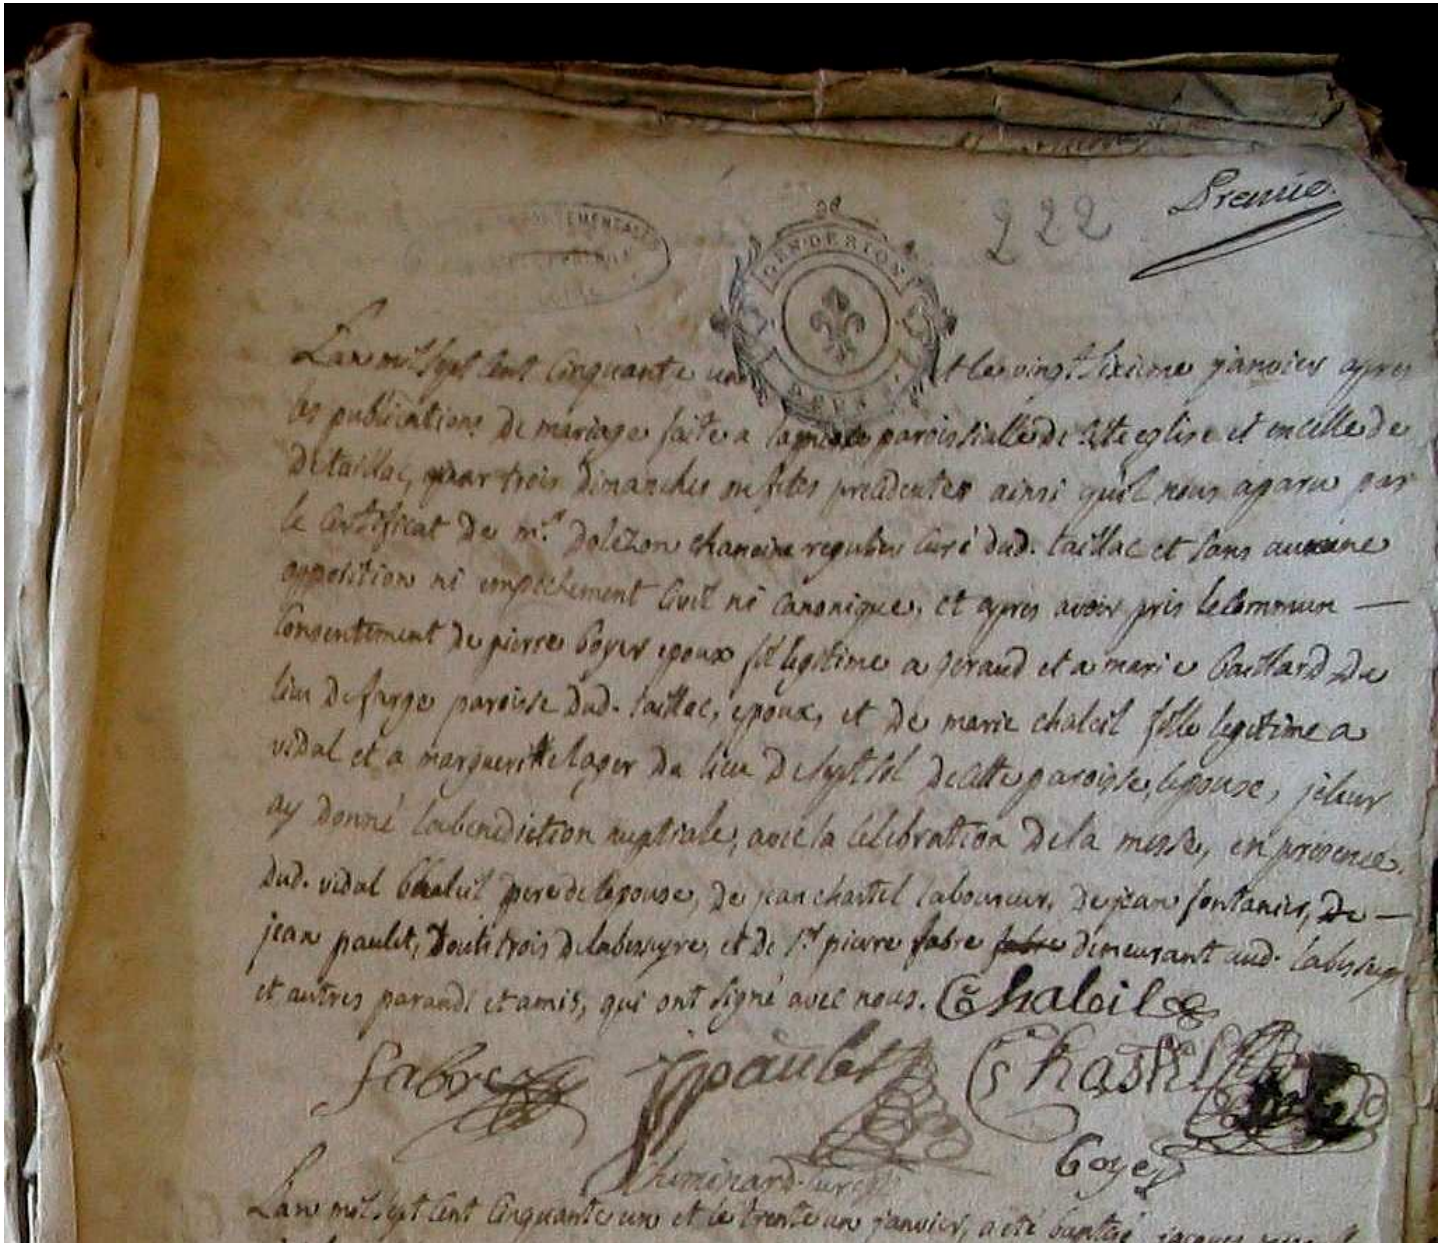 Premier
222
DEPARTEMENTALES
GEN·DE RION
DEUX
L'an mil sept cent cinquante un et le vingt sixieme janvier apres
les publications de mariage faite a la messe paroissialle de cette eglise et en celle de
de taillac, par trois dimanches ou fetes precedentes ainsi qu'il nous aparu par
le certificat de mr. dolezon chanoine regulier curé dud. taillac et sans aucune
opposition ni empechement civil ni canonique, et apres avoir pris le commun —
consentement de pierre boyer epoux fil legitime a geraud et a marie baillard du
lieu de farge paroisse dud. taillac, epoux, et de marie chaleil fille legitime a
vidal et a margueritte lager du lieu de sept sol de cette paroisse, epouse, je leur
ay donné la benediction nuptiale, avec la celebration de la messe, en presence
dud. vidal Chaleil pere de lepouse, de jean chastel laboureur, de jean fontanier, de —
jean paulet, touts trois de labesseyre, et de sr. pierre fabre fabre demeurant aud. labesseyre
et autres parands et amis, qui ont signé avec nous. Chaleil
fabre jpaulet Chastel
boyer
Cheminard curé
L'an mil sept cent cinquante un et le trente un janvier, a eté baptisé jacques